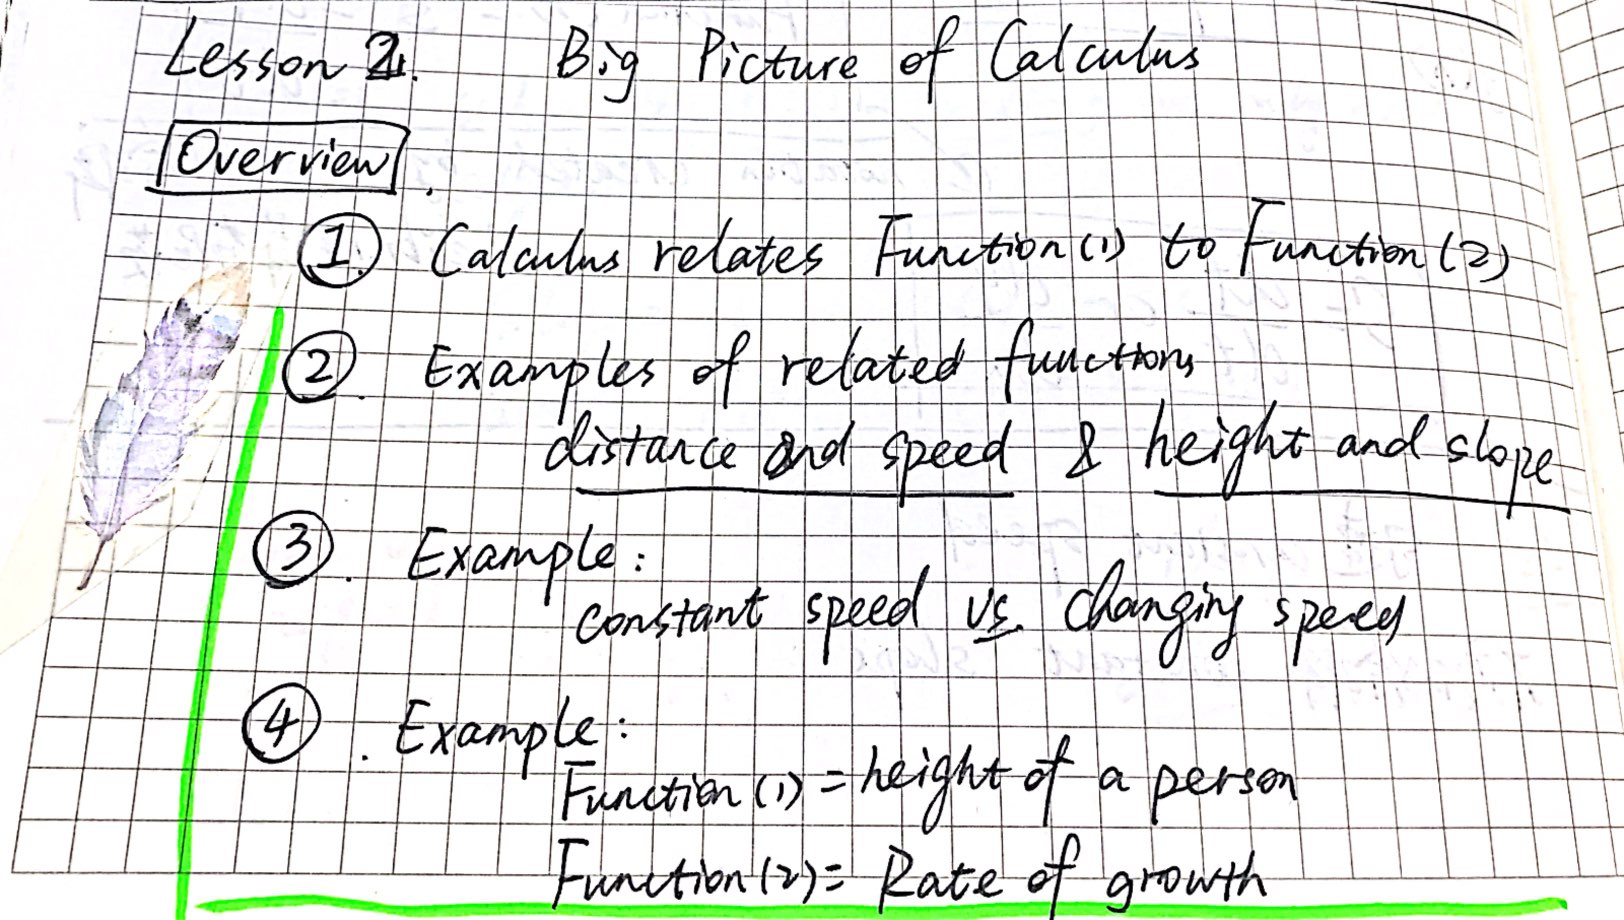 Lesson 1. Big Picture of Calculus
Overview.
① Calculus relates Function (1) to Function (2)
②. Examples of related functions
distance and speed & height and slope
③. Example:
constant speed vs. changing speed
④. Example:
Function (1) = height of a person
Function (2) = Rate of growth